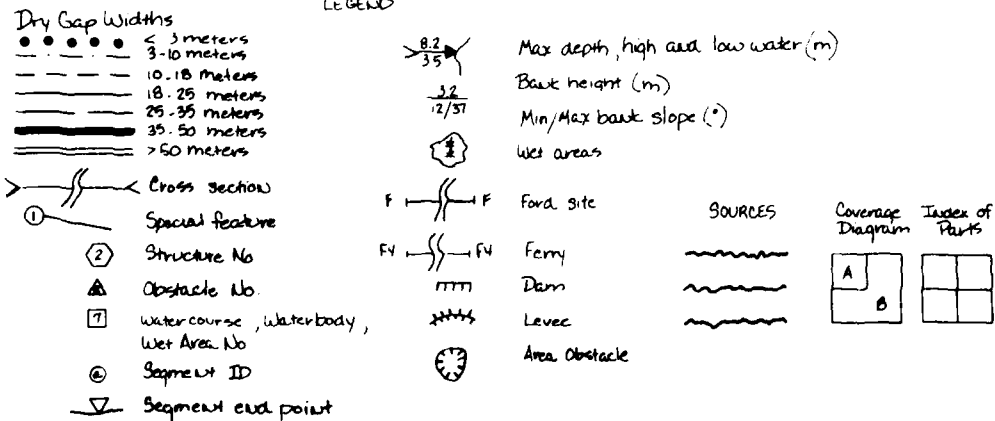 LEGEND
Dry Gap Widths
< 3 meters
3-10 meters
10-18 meters
18-25 meters
25-35 meters
35-50 meters
>50 meters
Cross section
1 Special feature
2 Structure No
Obstacle No.
7 Watercourse, Waterbody,
Wet Area No
a Segment ID
Segment end point
8.2
35
Max depth, high and low water (m)
3.2
12/37
Bank height (m)
Min/Max bank slope (°)
Wet areas
F F Ford site
Fy Fy Ferry
Dam
Levee
Area Obstacle
SOURCES
Coverage
Diagram
A
B
Index of
Parts